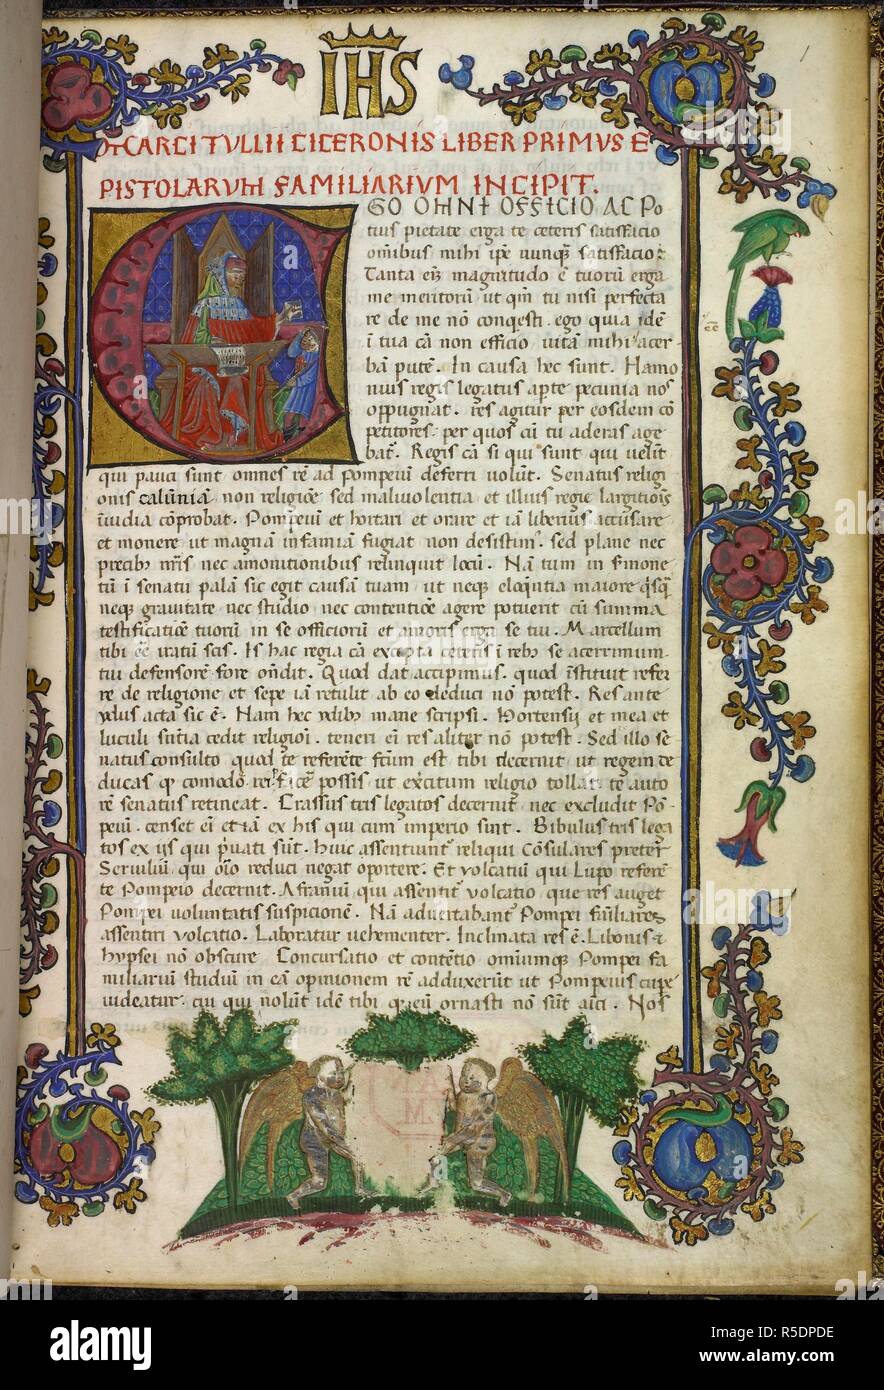 IHS
MARCI TULLII CICERONIS LIBER PRIMVS E
PISTOLARVM FAMILIARIVM INCIPIT.
GO OMNI OFFICIO AC Po
tius pietate erga te ceteris satisfacio
omībus mihi ipē nunqᷓ satisfacio:
Tanta em̄ magnitudo ē tuorū erga
me meritorū ut qm̄ tu nisi perfecta
re de me nō conqesti. ego quia idē
ī tua cā non efficio uitā mihi acer-
bā putē. In causa hec sunt. Hamo
nius regis legatus apte pecunia nos
oppugnat. res agitur per eosdem cō
petitores. per quos cū tu aderas age
bat. Regis cā si qui sunt qui uelīt
qui pauci sunt omnes rē ad Pompeiū deferri uolūt. Senatus religi
onis calūniā non religiōe sed maliuolentia et illius regie largitiōis
īuidia cōprobat. Pompeiū et hortari et orare et iā liberius accusare
et monere ut magnā infamiā fugiat non desistim. sed plane nec
precib nr̄is nec amonitionibus relinquit locū. Nā tum in sermone
tū ī senatu palā sic egit causā tuam ut neqꝫ eloq̄ntia maiore qsqᷓ
neqꝫ grauitate nec studio nec contentiōe agere potuerit cū summa
testificatiōe tuorū in se officiorū et amoris erga se tui. Marcellum
tibi eē iratū scis. Is hac regia cā excepta ceteris ī reb se acerrimum
tui defensorē fore oñdit. Quod dat accipimus. quod īstituit refer
re de religione et sepe iā retulit ab eo deduci nō potest. Res ante
ydus acta sic ē. Nam hec ydib mane scripsi. Hortensij et mea et
luculi sn̄tia cedit religioī. teneri eī res aliter nō potest. Sed illo se
natus consulto quod te referēte fctum est tibi decernit ut regem re
ducas qᵈ comodo rei p̄ ficē possis ut exc̄itum religio tollat te auto
rē senatus retineat. Crassus tris legatos decernit nec excludit Pō-
peiū. censet eī etiā ex his qui cum imperio sunt. Bibulus tris lega
tos ex ijs qui p̄uati sūt. huic assentiunt reliqui cōsulares preter
Seruiliū qui oīo reduci negat oportere. Et volcatiū qui Lupo referē
te Pompeio decernit. Afraniū qui assentit volcatio que res auget
Pompei uoluntatis suspicionē. Nā aduertabant Pompei fāiliares
assentiri volcatio. Laboratur uehementer. Inclinata res ē. Libonis et
hypsei nō obscure Concursatio et contētio omiumqꝫ Pompei fa
miliariū studiū in eā opinionem rē adduxerūt ut Pompeius cupe
uideatur. cui qui nolūt idē tibi q eū ornasti nō sūt aīci. Nos
alamy
Image ID: R5DPDE
www.alamy.com